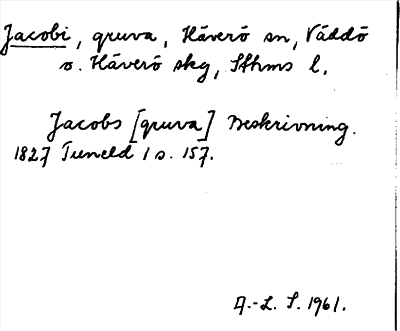 Jacobi, gruva, Häverö sn, Väddö
o. Häverö skg, Sthms l.
Jacobs [gruva] Beskrivning.
1827 Tuneld 1 s. 157.
A.-L. S. 1961.